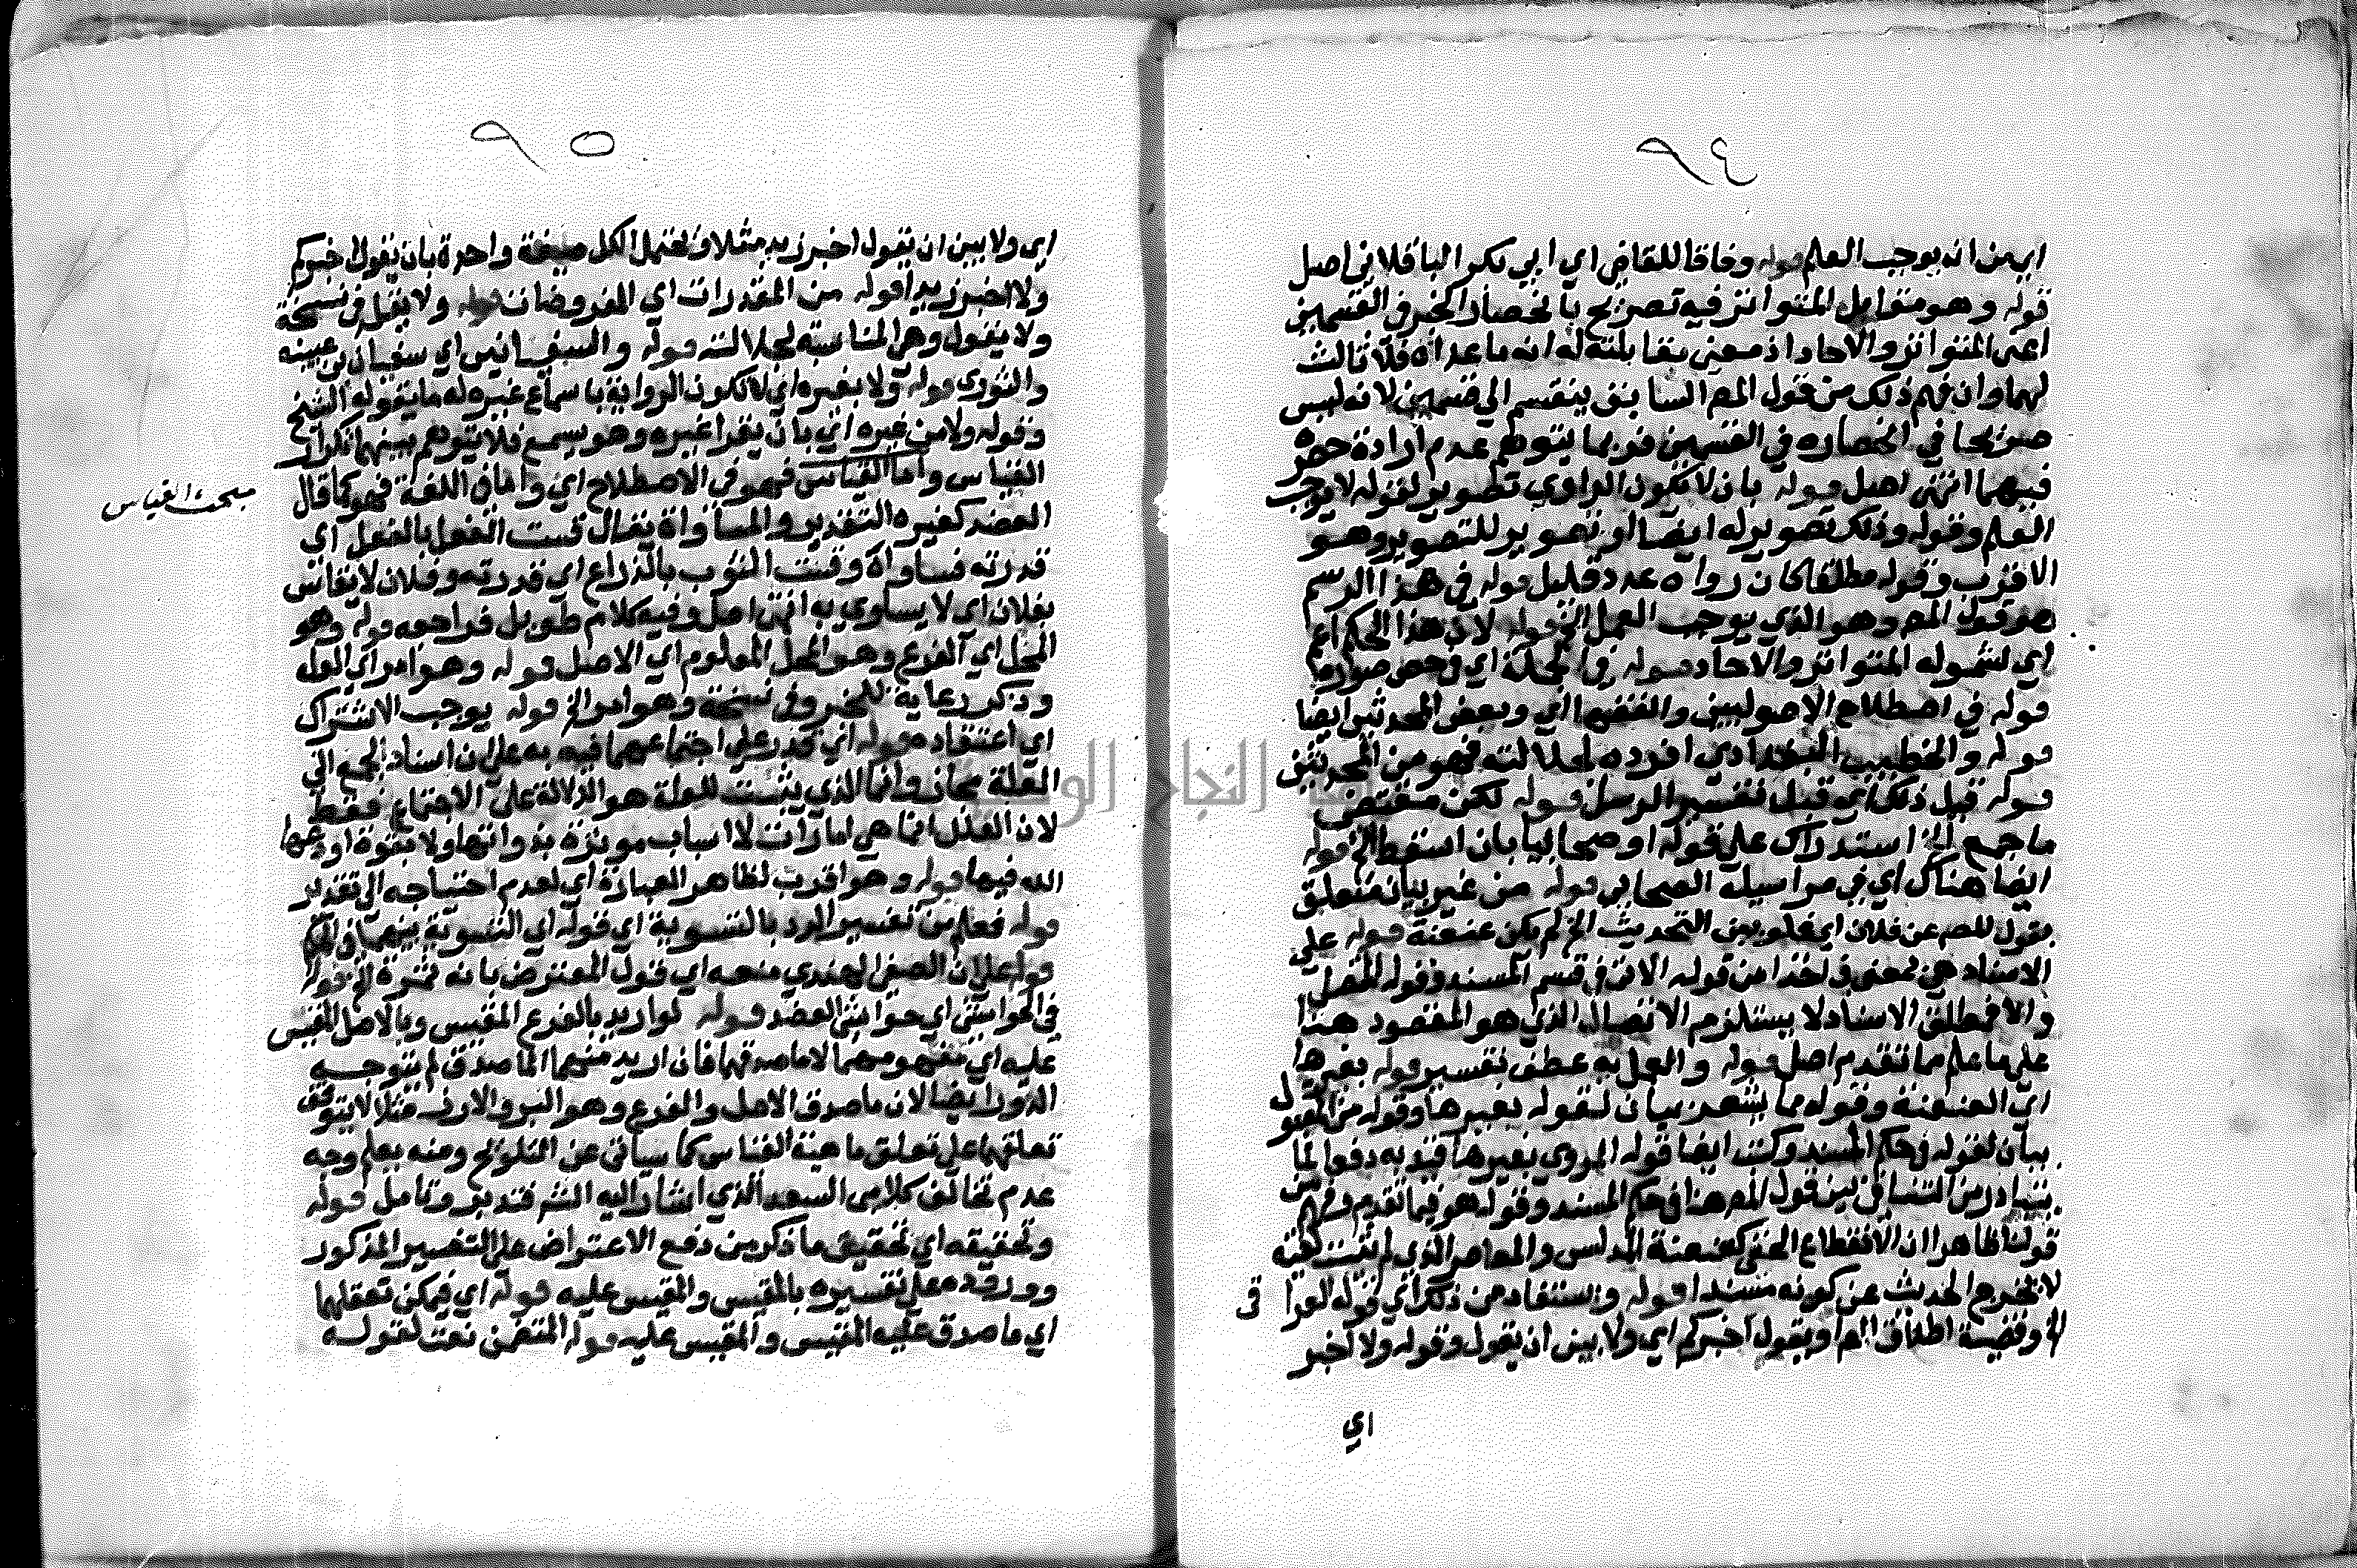 ٩٤
اي من انه يوجب العلم قوله وفاقا للقاضي اي ابي بكر الباقلاني اصل
قوله وهو مقابل المتواتر فيه تصريح بانحصار الخبر في القسمين
اعني المتواتر والاحاد اذ معنى مقابلته له انه ما عداه فلا ثالث
لهما وان فهم ذلك من قول المص السابق ينقسم الي قسمين لانه ليس
صريحا في انحصاره في القسمين فربما يتوهم عدم ارادة حصره
فيهما انتهى اصل قوله بان لا يكون الراوي تصوير لقوله لا يوجب
العلم وقوله وذلك تصوير له ايضا او تصوير للتصوير وهو
الاقرب وقوله مطلقا كان رواه عدد قليل قوله في هذا الرسم
هو قول المص وهو الذي يوجب العمل الخ قوله لان هذا الحكم اعم
اي لشموله المتواتر والاحاد قوله في الجملة اي في بعض صوره
قوله في اصطلاح الاصوليين والفقهاء اي وبعض المحدثين ايضا
قوله والخطيب البغدادي افرده لجلالته فهو من المحدثين
قوله قبل ذلك اي قبل تفسير المرسل قوله لكن مقتضى
ما جمع الخ استدراك على قوله او صحابيا بان اسقط الخ قوله
ايضا هناك اي في مراسيله الصحابي قوله من غير بيان متعلق
بقول المص عن فلان اي فلو بين التحديث الخ لم يكن عنعنة قوله على
الاسناد هي بمعنى في اخذا من قوله الاتي في قسم المسند وقوله المتصل
والا فمطلق الاسناد لا يستلزم الاتصال الذي هو المقصود هنا
على ما علم مما تقدم اصل قوله والعمل به عطف تفسير قوله بغيرها
اي العنعنة وقوله مما يشعر بيان لقوله بغيرها وقوله من المقبول
بيان لقوله في حكم المسند وكتب ايضا قوله المروي بغيرها قيد به دفعا لما
يتبادر من التنافي بين قول المص هنا في حكم المسند وقوله هو فيما تقدم وفهم من
قولنا ظاهرا ان الانقطاع الخفي كعنعنة المدلس والمعاصر الذي لم يثبت لقيه
لا يخرج الحديث عن كونه مسندا قوله ويستفاد من ذلك اي قوله لو قرا
الخ وقضية اطلاق المص او يقول اخبركم اي ولا بين ان يقول وقوله ولا اخبر
اي
٩٥
اي ولا بين ان يقول اخبر زيد مثلا ويحتمل الكل صيغة واحدة بان يقول اخبركم
ولا اخبر زيد قوله من المقدرات اي المفروضات قوله ولا يقل في نسخة
ولا يقول وهي المناسبة لجلالته قوله والسفيانين اي سفيان بن عيينه
والثوري قوله ولا بغيره اي لا تكون الرواية باسماع غيره له ما يقوله الشيخ
وقوله ولا من غيره اي بان يقرا غيره وهو يسمع فلا يتوهم بينهما تكرار
القياس واما القياس فهو في الاصطلاح اي واما في اللغة فهو كما قال
مبحث القياس
العضد كغيره التقدير والمساواة يقال قست النعل بالنعل اي
قدرته فساواه وقست الثوب بالذراع اي قدرته وفلان لا يقاس
بفلان اي لا يساوي به انتهى اصل وفيه كلام طويل فراجعه قوله وهو
المحل اي الفرع وهو المحل المعلوم اي الاصل قوله وهو امر اي العلة
وذكر رعاية للخبر وفي نسخة وهو امر الخ قوله يوجب الاشتراك
اي اعتقاده قوله اي قدر علي اجتماعهما فيه به على ان اسناد الجمع الى
العلة مجاز وانما الذي يثبت للعلة هو الدلالة على الاجتماع فقط
لان العلل انما هي امارات لا اسباب موثرة بذواتها ولا بقوة اودعها
الله فيها قوله وهو اقرب لظاهر العبارة اي لعدم احتياجه الى تقدير
قوله فعلم من تفسير الرد بالتسوية اي قوله اي التسوية بينهما في الحكم
قوله على ان الصفي الهندي منعه اي قول المعترض بانه ثمرة الخ قوله
في الحواشي اي حواشي العضد قوله لو اريد بالفرع المقيس وبالاصل المقيس
عليه اي مفهومهما لا ماصدقهما فان اريد منهما الماصدق لم يتوجه
الدور ايضا لان ماصدق الاصل والفرع وهو البر والارز مثلا لا يتوقف
تعلقهما على تعلق ماهية القياس كما سياتي عن التلويح ومنه يعلم وجه
عدم تخالف كلامي السعد الذي اشار اليه الشر فتدبر وتامل قوله
وتحقيقه اي تحقيق ما ذكر من دفع الاعتراض على التفسير المذكور
ووروده على تفسيره بالمقيس والمقيس عليه قوله اي فيمكن تعقلها
اي ماصدق عليه المقيس والمقيس عليه قوله المتضمن نعت لقوله